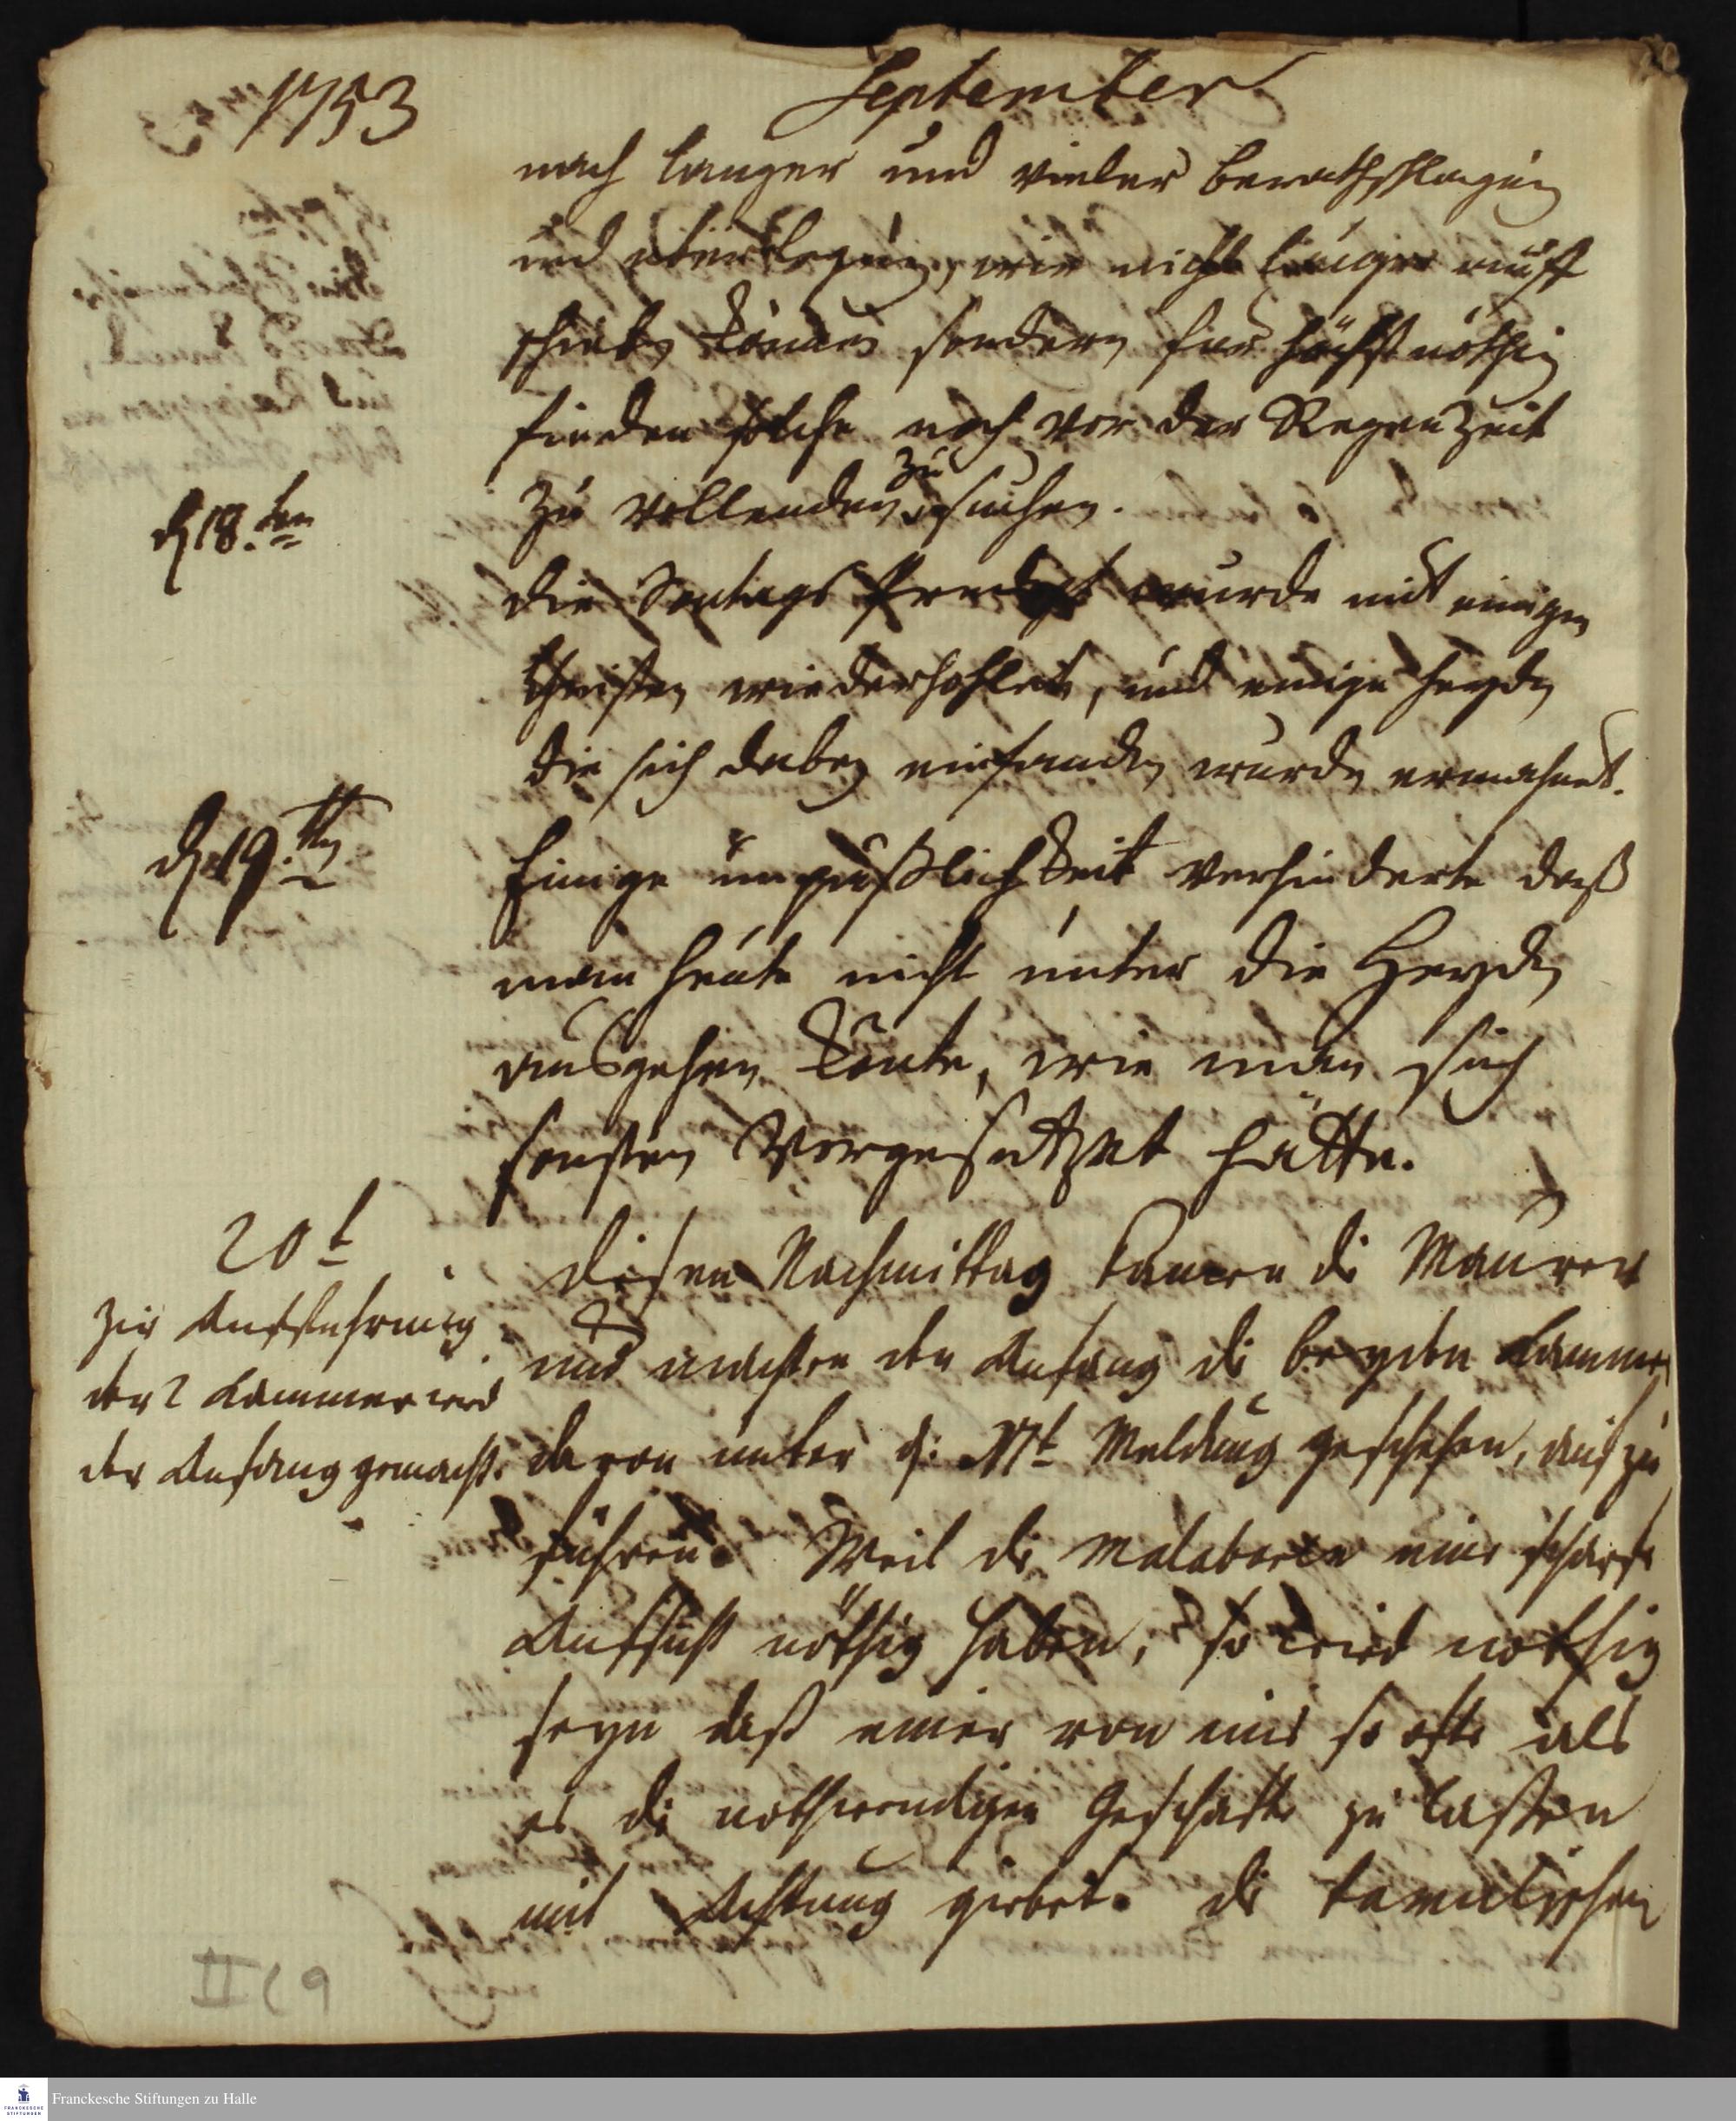 1753
September
nach langer und vieler berathschlagung
und uberlegung, wir nicht länger auff
schieben können sondern fur höchstnöthig
finden solche noch vor der RegenZeit
zu vollenden zu suchen.
d 18.ten
die Sontags Predigt wurde mit einigen
Christen wiederhohlet, und einige heyden
die sich dabey einfanden wurden ermahnet.
d 19.ten
Einige unpäßlichkeit verhinderte daß
man heute nicht unter die Heyden
ausgehen konte, wie man sich
sonsten Vorgesetzet hätte.
20t
Zur Aufführung
der 2 Kammer wird
der Anfang gemacht.
diesen Nachmittag kamen di Maurer
und machten den Anfang di beyden Kammer
davon unter d. Mt Meldung geschehen, auf zu
führen. Weil di Malabaren eine scharfe
Aufsicht nöthig haben, so wird nöthig
seyn daß einer von uns so offt als
es di nothwendigen Geschäfte zu laßen
mit Achtung giebet. di tamulischen
II C 9
Franckesche Stiftungen zu Halle
FRANCKESCHE
STIFTUNGEN